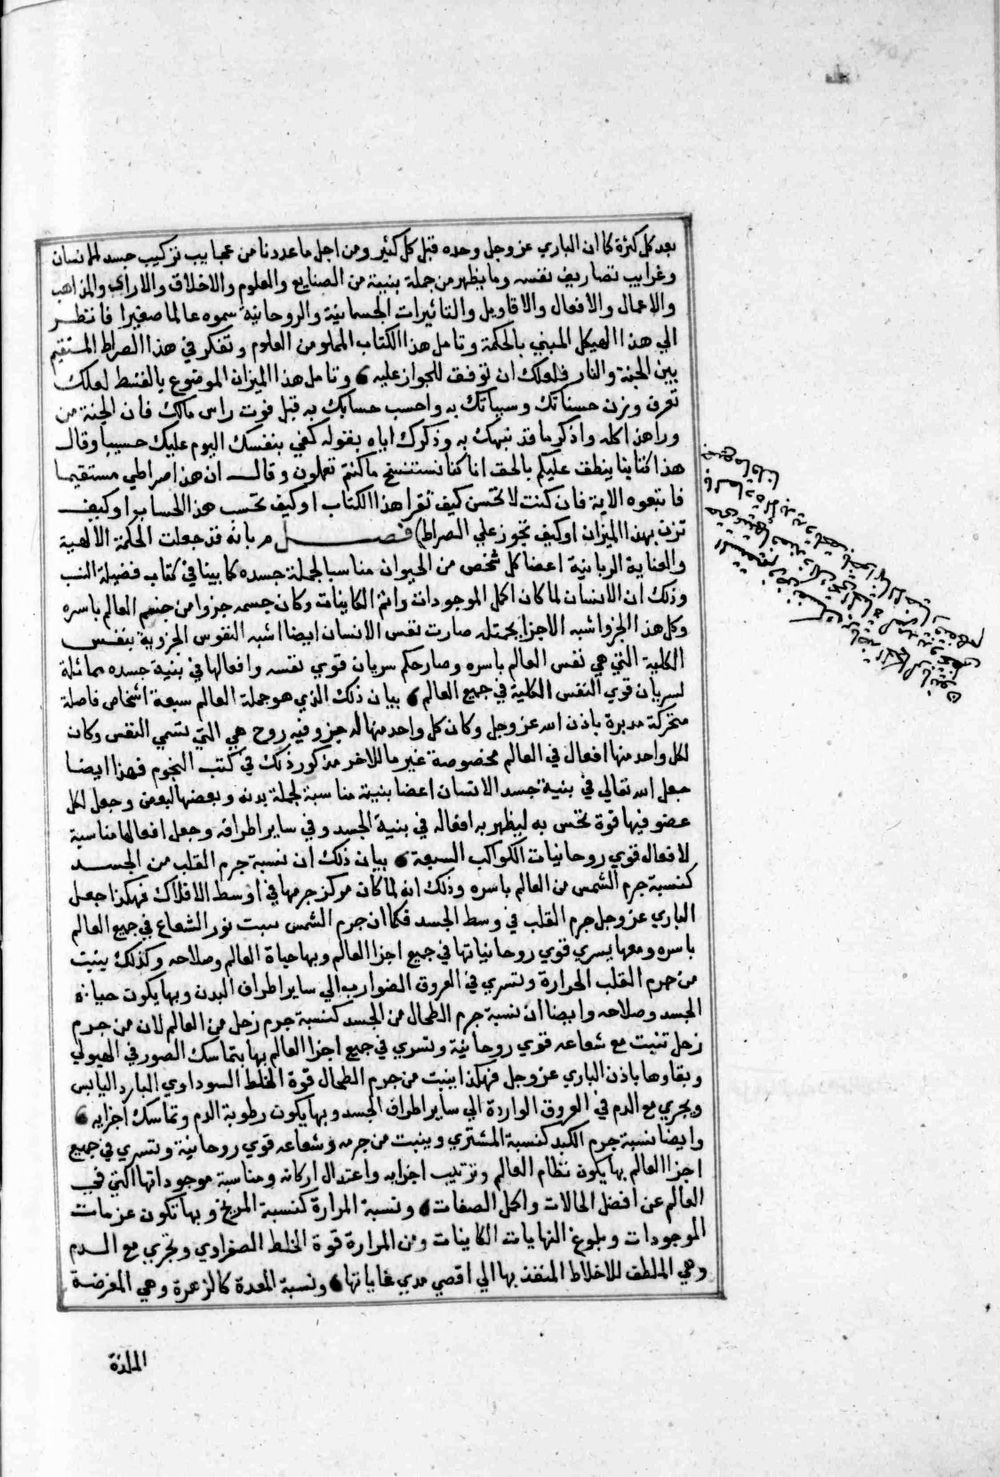 بعد كل كثرة كما ان الباري عز وجل وحده قبل كل كثير ومن اجل ما عددنا من عجايب تركيب جسد الانسان
وغرايب تصاريف نفسه وما يظهر من جملة بنيته من الصنايع والعلوم والاخلاق والاراي والمذاهب
والاعمال والافعال والاقاويل والتاثيرات الجسمانية والروحانية سموه عالما صغيرا فانظر
الي هذا الهيكل المبني بالحكمة وتامل هذا الكتاب المملو من العلوم وتفكر في هذا الصراط المستقيم
بين الجنة والنار فلعلك ان توفق للجواز عليه وتامل هذا الميزان الموضوع بالقسط لعلك
تعرف وزن حسناتك وسيياتك به واحسب حسابك به قبل فوت راس مالك فان الجنة من
ورا هذا كله واذكر ما قد نبهك به وذكرك اياه بقوله كفي بنفسك اليوم عليك حسيبا وقال
هذا كتابنا ينطق عليكم بالحق انا كنا نستنسخ ما كنتم تعملون وقال ان هذا صراطي مستقيما
فاتبعوه الاية فان كنت لا تحسن كيف تقرا هذا الكتاب او كيف تحسب هذا الحساب او كيف
تزن بهذا الميزان او كيف تجوز علي الصراط فصل بانه قد جعلت الحكمة الالهية
والعناية الربانية اعضا كل شخص من الحيوان مناسبا لجملة جسده كما بينا في كتاب فضيلة النسب
وذلك ان الانسان لما كان اكمل الموجودات واتم الكاينات وكان جسمه جزوا من جسم العالم باسره
وكل هذا الجزو اشبه الاجزا بجملته صارت نفس الانسان ايضا اشبه النفوس الجزوية بنفس
الكلية التي هي نفس العالم باسره وصار حكم سريان قوي نفسه وافعالها في بنية جسده مماثلة
لسريان قوي النفس الكلية في جميع العالم بيان ذلك الذي هو جملة العالم سبعة اشخاص فاضلة
متحركة مدبرة باذن الله عز وجل وكان كل واحد منها له جزو فيه روح هي التي تسمي النفس وكان
لكل واحد منها افعال في العالم مخصوصة غير ما للاخر مذكور ذلك في كتب النجوم فهذا ايضا
جعل الله تعالي في بنية جسد الانسان اعضا بنيته مناسبة لجملة بدنه وبعضها لبعض وجعل لكل
عضو فيها قوة تختص به ليظهر به افعاله في بنية الجسد وفي ساير اطرافه وجعل افعالها مناسبة
لافعال قوي روحانيات الكواكب السبعة بيان ذلك ان نسبة جرم القلب من الجسد
كنسبة جرم الشمس من العالم باسره وذلك انه لما كان مركز جرمها في اوسط الافلاك فهكذا جعل
الباري عز وجل جرم القلب في وسط الجسد فكما ان جرم الشمس سبب نور الشعاع في جميع العالم
باسره ومعها يسري قوي روحانياتها في جميع اجزا العالم وبها حياة العالم وصلاحه وكذلك ينبت
من جرم القلب الحرارة وتسري في العروق الضوارب الي ساير اطراف البدن وبها يكون حياة
الجسد وصلاحه وايضا ان نسبة جرم الطحال من الجسد كنسبة جرم زحل من العالم لان من جرم
زحل تنبت مع شعاعه قوي روحانية وتسري في جميع اجزا العالم بها يتماسك الصور في الهيولي
وبقاوها باذن الباري عز وجل فهكذا ينبت من جرم الطحال قوة الخلط السوداوي البارد اليابس
ويجري مع الدم في العروق الواردة الي ساير اطراف الجسد وبها يكون رطوبة الدم وتماسك اجزايه
وايضا نسبة جرم الكبد كنسبة المشتري وينبت من جرمه وشعاعه قوي روحانية وتسري في جميع
اجزا العالم بها يكون نظام العالم وترتيب اجزايه واعتدال اركانه ومناسبة موجوداتها التي في
العالم عن افضل الحالات واكمل الصفات ونسبة المرارة كنسبة المريخ وبها تكون عزمات
الموجودات وبلوغ النهايات الكاينات ومن المرارة قوة الخلط الصفراوي وتجري مع الدم
وهي الملطف للاخلاط المنفذ بها الي اقصي مدي غاياتها ونسبة المعدة كالزهرة وهي المعرضة
الملذة